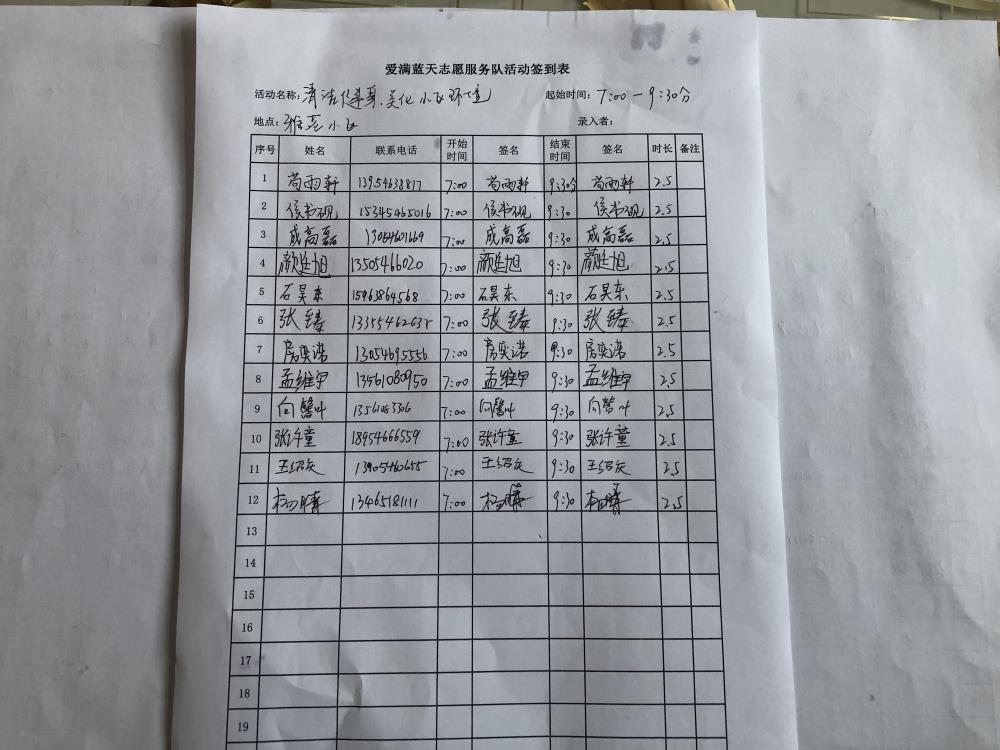 爱满蓝天志愿服务队活动签到表
活动名称：清洁健身，美化小区环境 起始时间：7:00-9:30分
地点：雅苑小区 录入者：
序号 姓名 联系电话 开始时间 签名 结束时间 签名 时长 备注
1 苟雨轩 13954638817 7:00 苟雨轩 9:30分 苟雨轩 2.5
2 侯书砚 15345465016 7:00 侯书砚 9:30 侯书砚 2.5
3 成高磊 13054601669 7:00 成高磊 9:30 成高磊 2.5
4 颜廷旭 13505466020 7:00 颜廷旭 9:30 颜廷旭 2.5
5 石昊东 15963864568 7:00 石昊东 9:30 石昊东 2.5
6 张臻 7:00 张臻 9:30 张臻 2.5
7 房奕诺 13054695556 7:00 房奕诺 9:30 房奕诺 2.5
8 孟维甲 13561080950 7:00 孟维甲 9:30 孟维甲 2.5
9 向馨叶 1356183306 7:00 向馨叶 9:30 向馨叶 2.5
10 张许童 18954666559 7:00 张许童 9:30 张许童 2.5
11 王绍庆 13905460655 7:00 王绍庆 9:30 王绍庆 2.5
12 13465181111 7:00 9:30 2.5
13
14
15
16
17
18
19